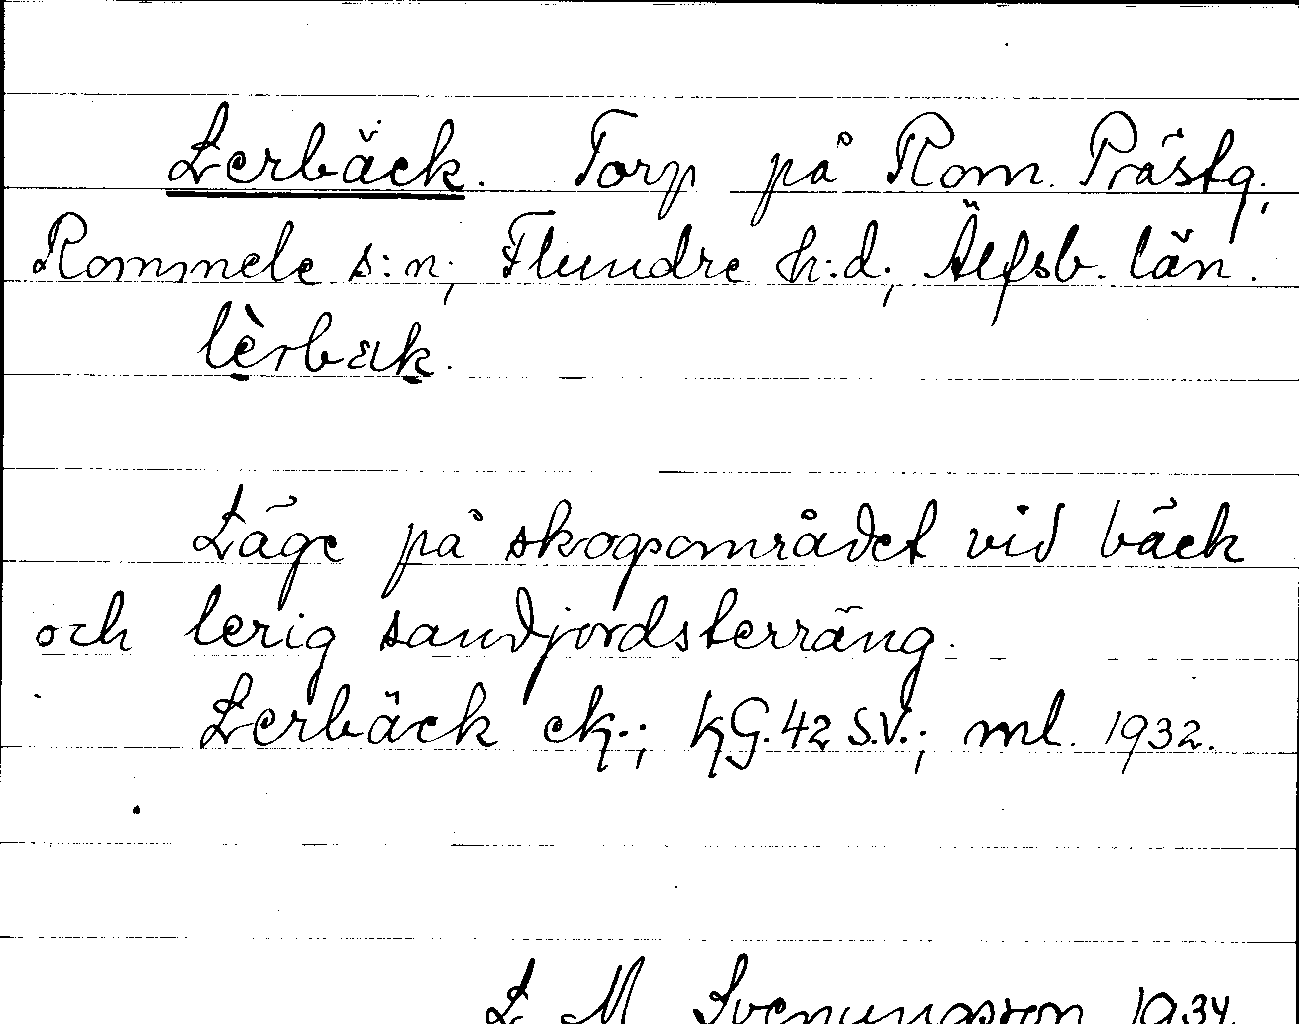 Lerbäck. Torp på Rom. Prästg.;
Rommele s:n; Flundre h:d; Älfsb. län.
lèrbak.
Läge på skogsområdet vid bäck
och lerig sandjordsterräng.
Lerbäck ek.; kG.42 S.V.; ml. 1932.
L M Svenungsson 1934.